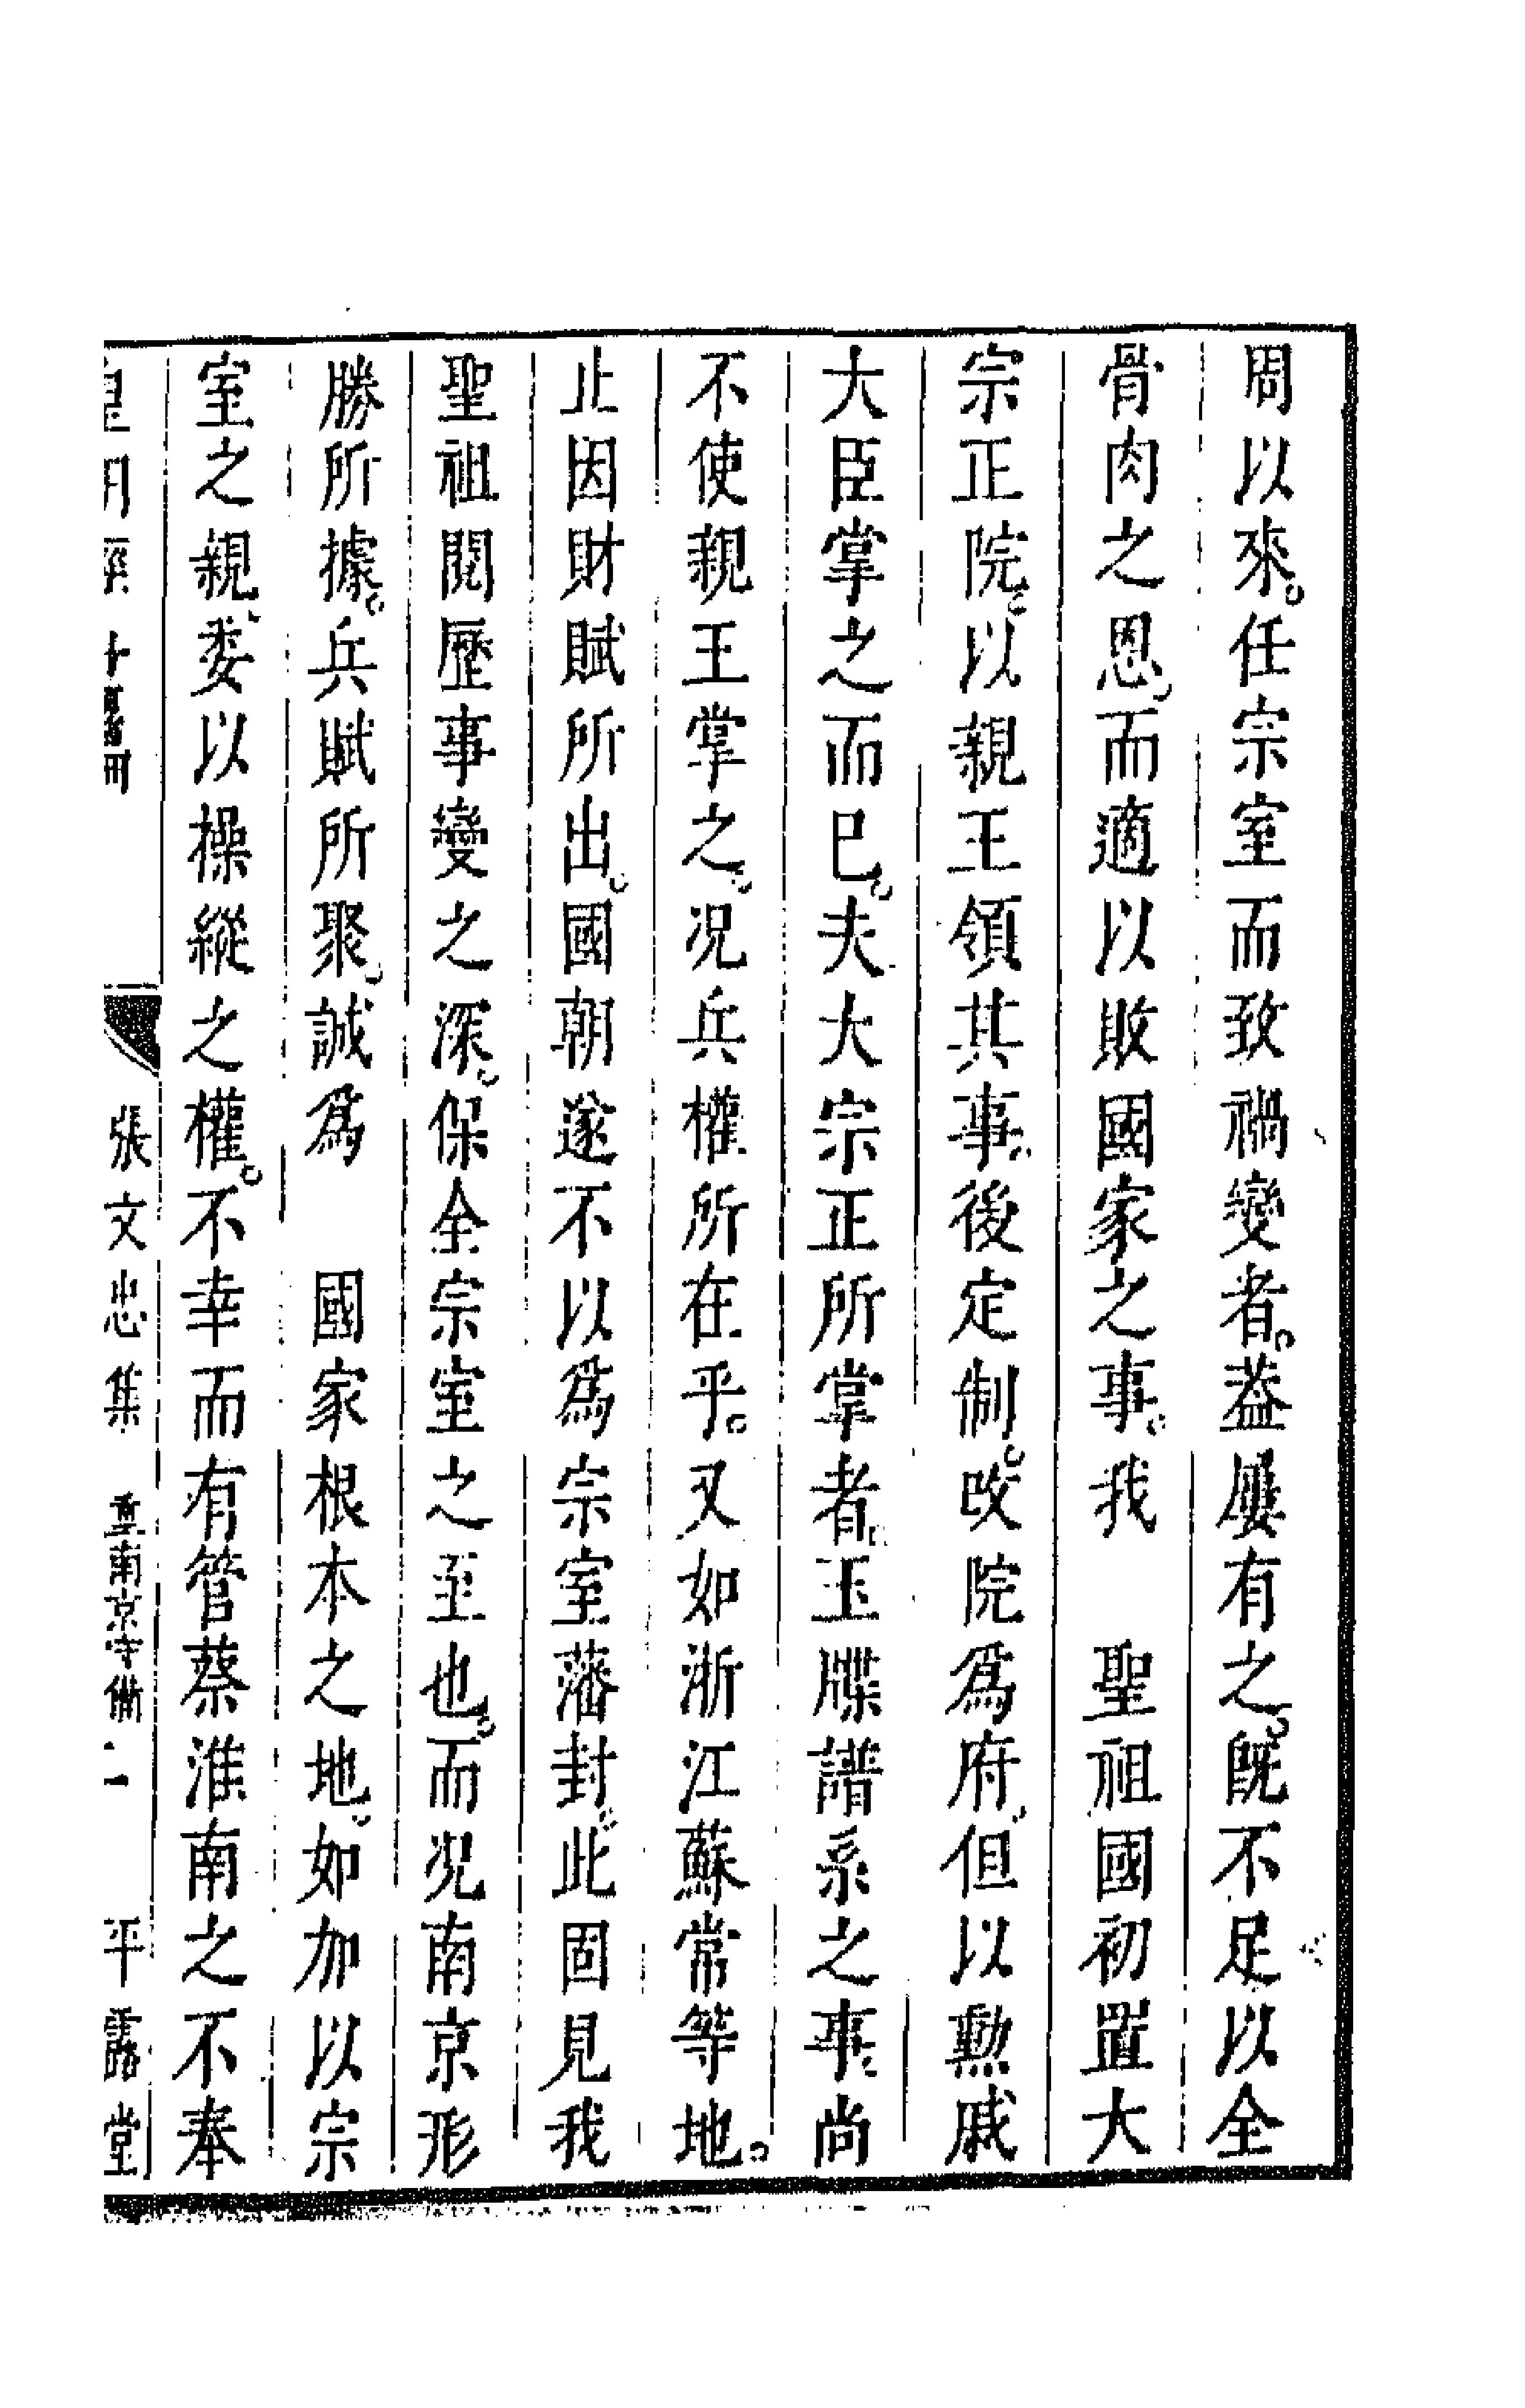 周以來。任宗室而致禍變者。葢屢有之。旣不足以全
骨肉之恩。而適以敗國家之事。我　聖祖國初置大
宗正院。以親王領其事。後定制。攺院爲府。但以勲戚
大臣掌之而已。夫大宗正所掌者。玉牒譜系之事。尚
不使親王掌之。况兵權所在乎。又如浙江蘇常等地。
止因財賦所出。國朝遂不以爲宗室藩封。此固見我
聖祖閱歷事變之深。保全宗室之至也。而况南京形
勝所據。兵賦所聚。誠爲　國家根本之地。如加以宗
室之親、委以操縱之權。不幸而有管蔡淮南之不奉
張文忠集　重南京守備　二　平露堂